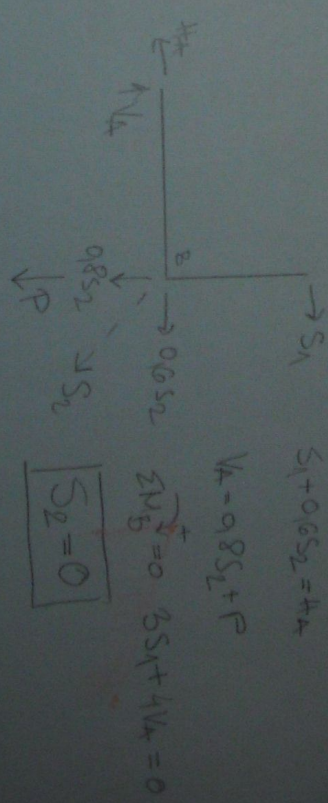 S1
HA
VA
B
0,6S2
0,8S2
S2
P
S1+0,6S2=HA
VA=0,8S2+P
+
ΣMB=0 3S1+4VA=0
S2=0